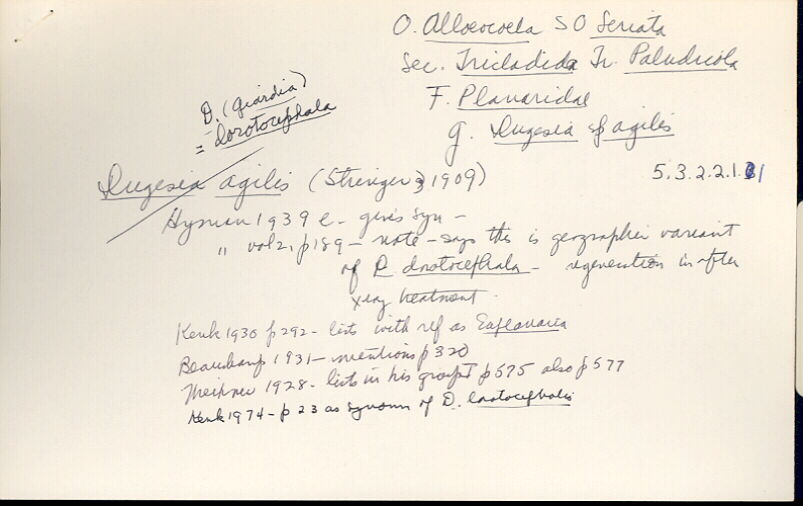 O. Alloeocoela SO Seriata
Sec. Tricladida Tr. Paludicola
F. Planaridae
g. Dugesia sp agilis
5.3.2.2.1.31
D. (Girardia)
= dorotocephala
Dugesia agilis (Stringer, 1909)
Hyman 1939 e - gives syn -
" vol 2, p 189 - note - says this is geographic variant
of D. dorotocephala - regeneration in after
xray treatment.
Kenk 1930 p 292 - lists with ref as Euplanaria
Beauchamp 1931 - mentions p 320
Meixner 1928 - lists in his group p 575 also p 577
Kenk 1974 - p 23 as synonm of D.